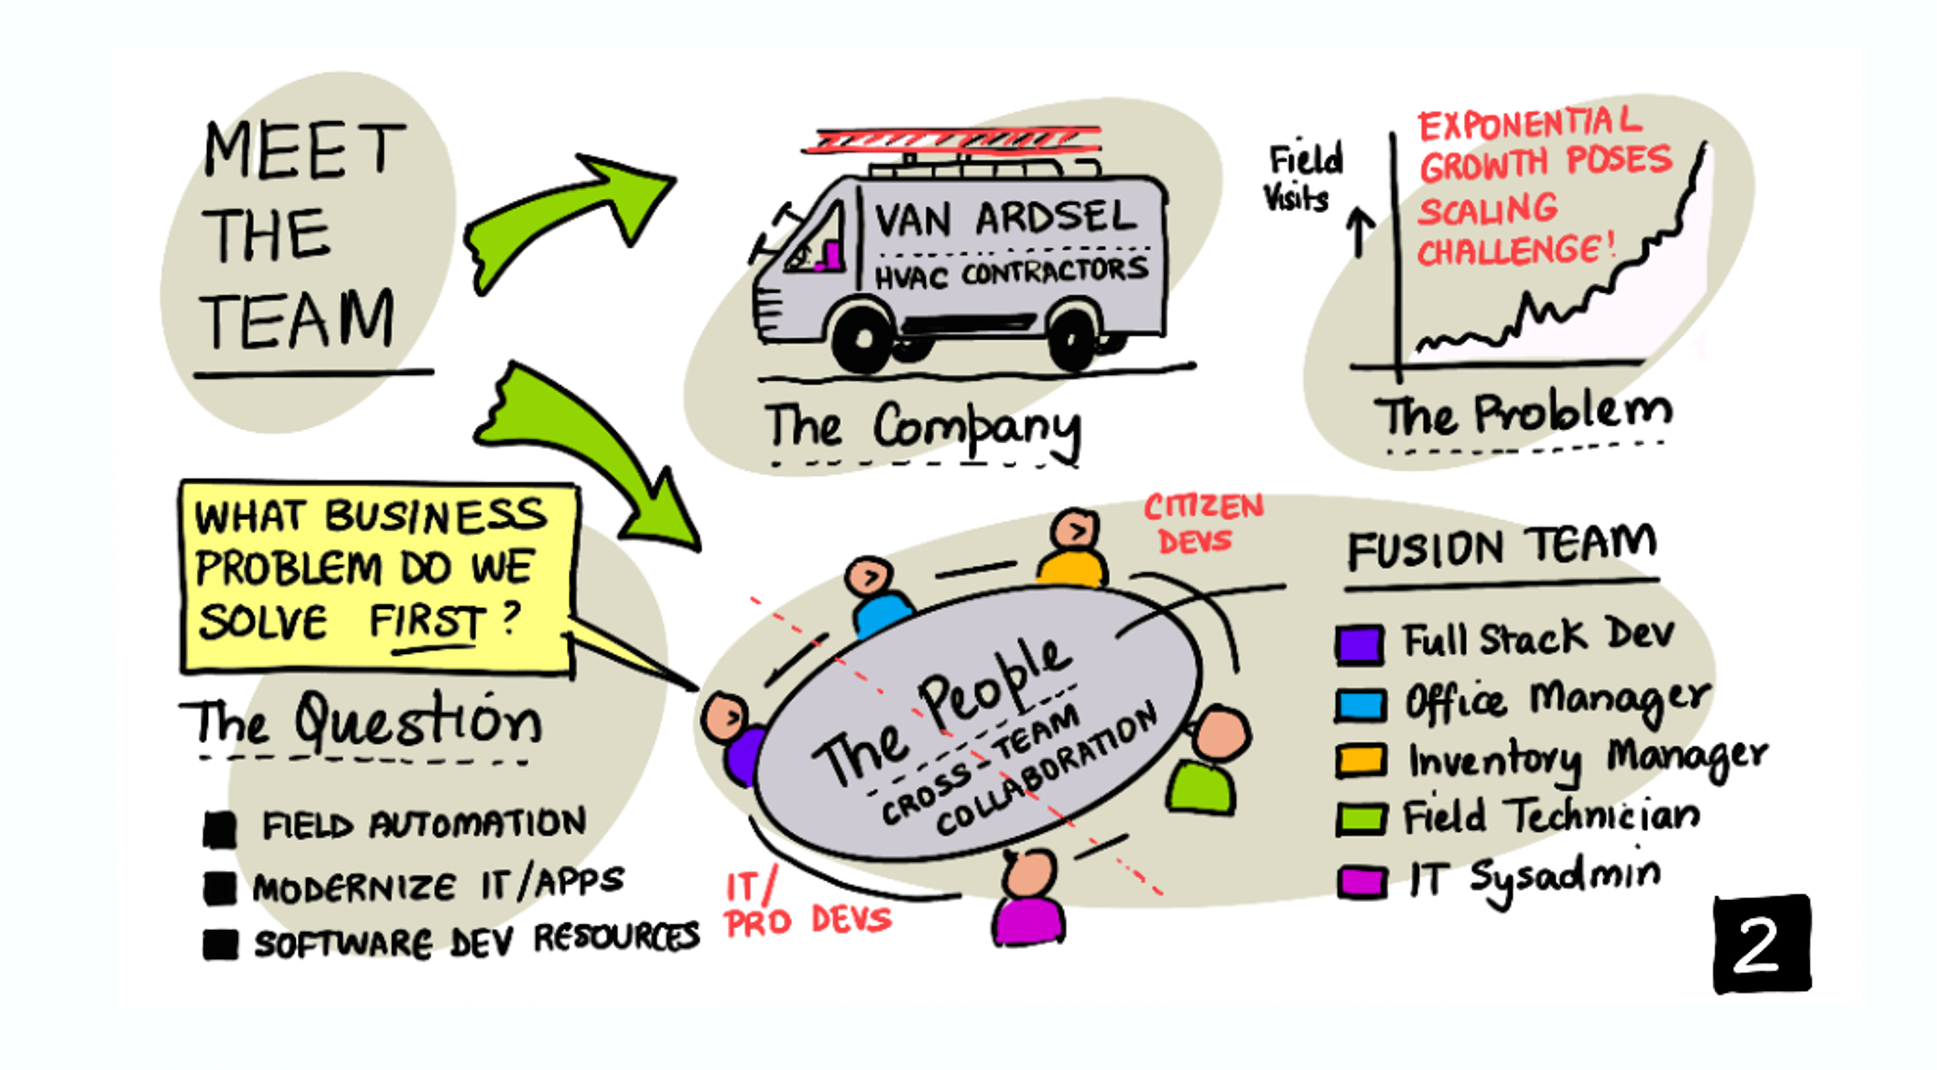 MEET
THE
TEAM
VAN ARDSEL
HVAC CONTRACTORS
The Company
Field
Visits
EXPONENTIAL
GROWTH POSES
SCALING
CHALLENGE!
The Problem
WHAT BUSINESS
PROBLEM DO WE
SOLVE FIRST?
The Question
FIELD AUTOMATION
MODERNIZE IT/APPS
SOFTWARE DEV RESOURCES
CITIZEN
DEVS
The People
CROSS-TEAM
COLLABORATION
IT/
PRO DEVS
FUSION TEAM
Full Stack Dev
Office Manager
Inventory Manager
Field Technician
IT Sysadmin
2